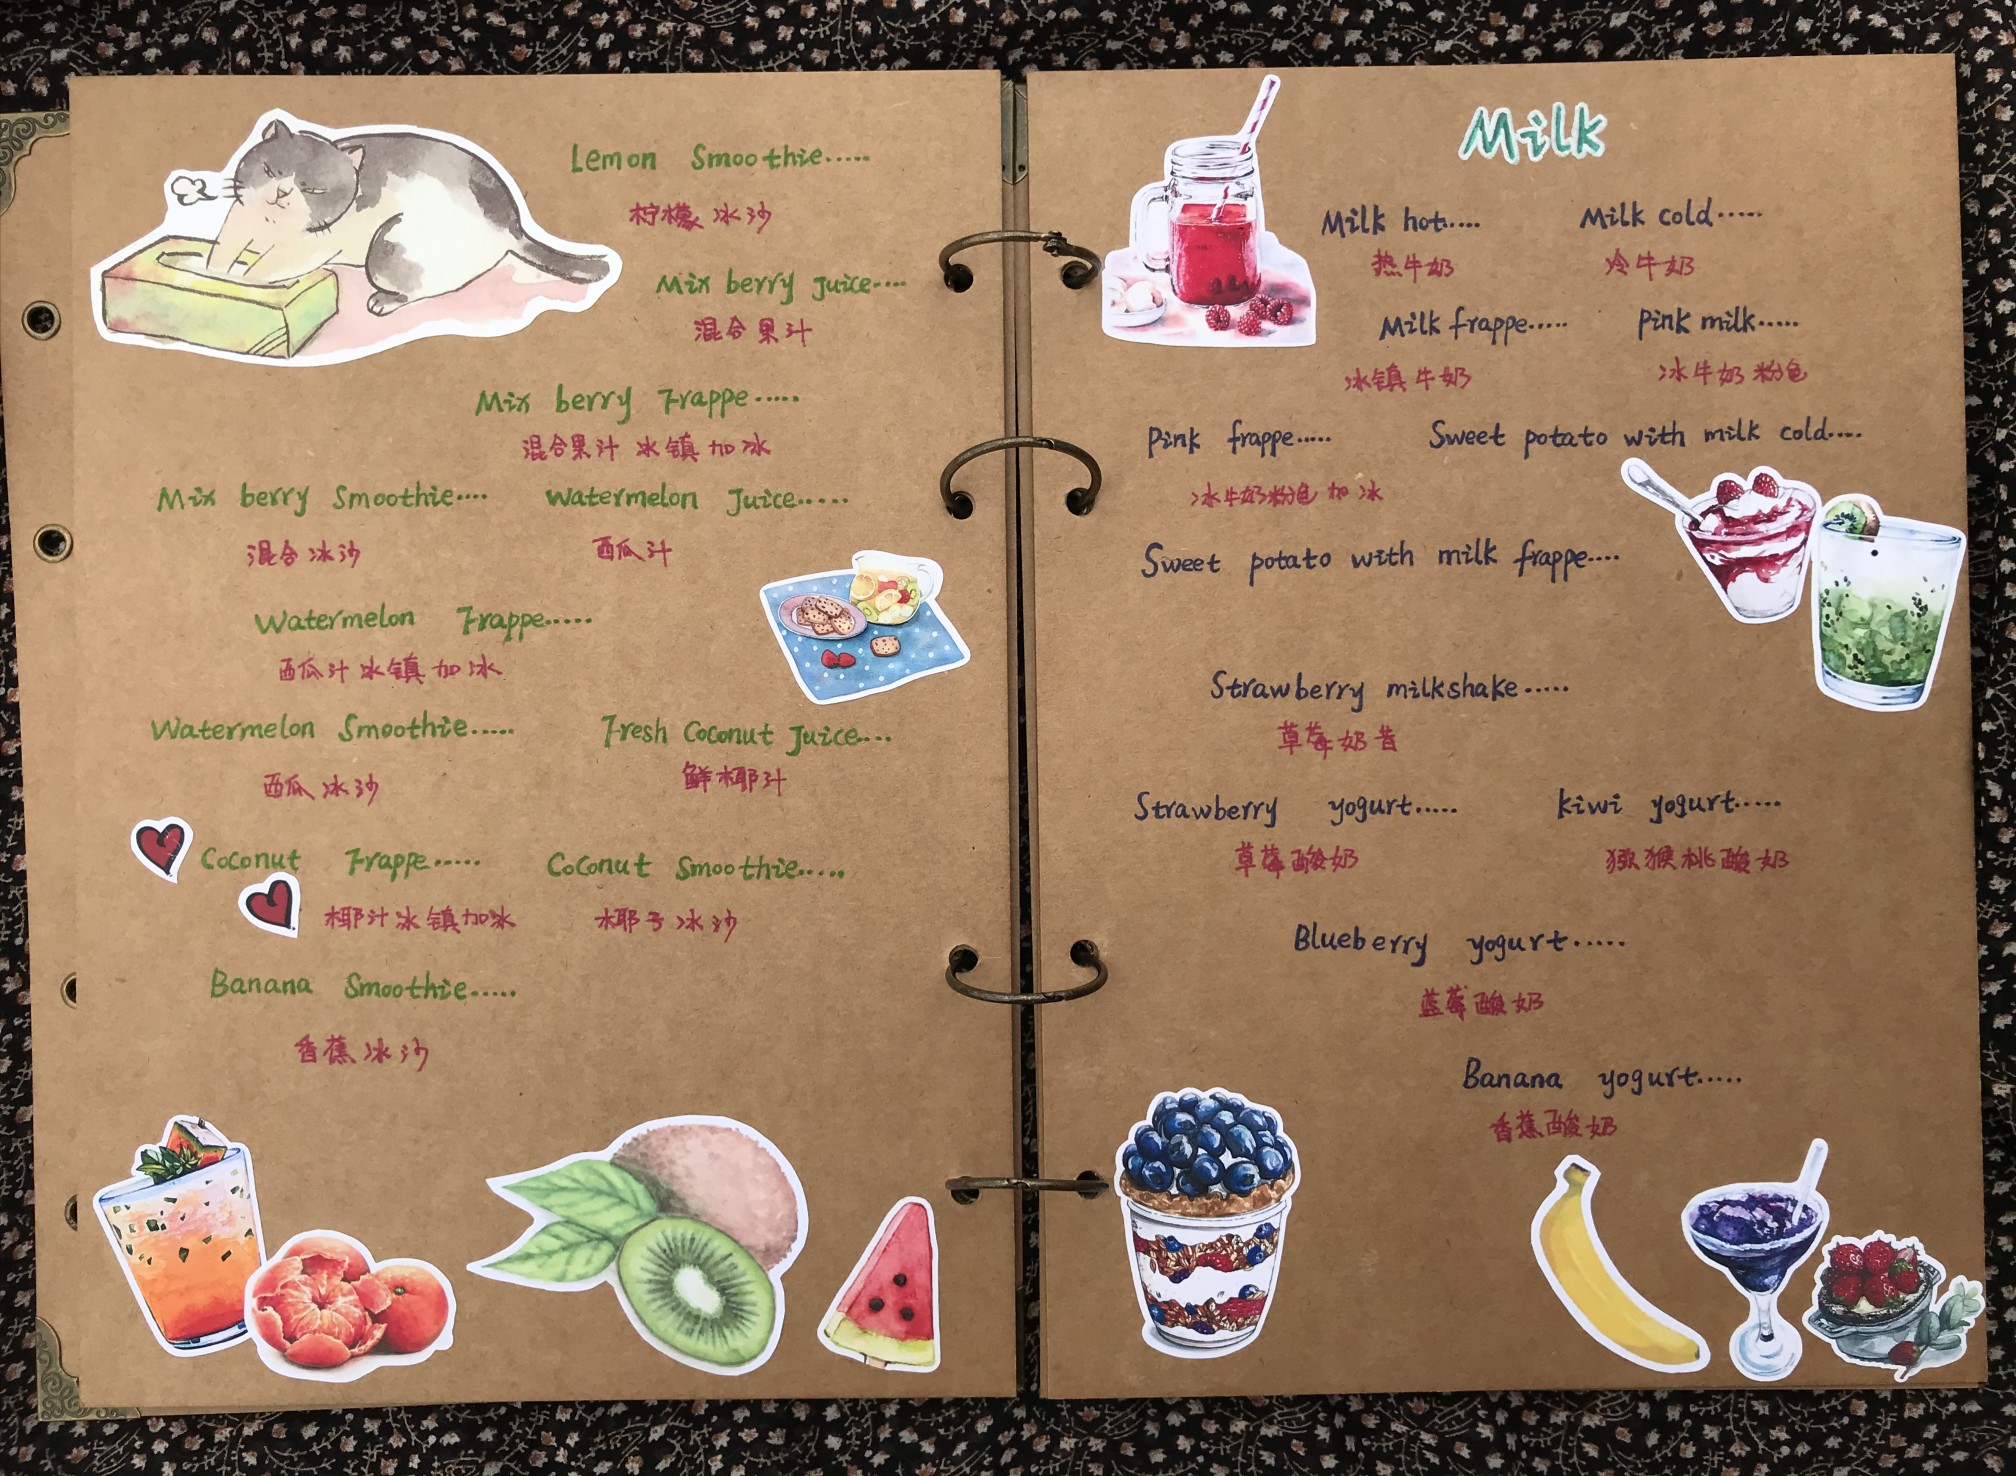 Lemon Smoothie.....
柠檬冰沙
Mix berry Juice....
混合果汁
Mix berry Frappe.....
混合果汁冰镇加冰
Mix berry Smoothie....
混合冰沙
Watermelon Juice.....
西瓜汁
Watermelon Frappe.....
西瓜汁冰镇加冰
Watermelon Smoothie.....
西瓜冰沙
Fresh Coconut Juice....
鲜椰汁
Coconut Frappe.....
椰汁冰镇加冰
Coconut Smoothie.....
椰子冰沙
Banana Smoothie.....
香蕉冰沙
Milk
Milk hot.....
热牛奶
Milk cold.....
冷牛奶
Milk frappe.....
冰镇牛奶
Pink milk.....
冰牛奶粉色
Pink frappe.....
冰牛奶粉色加冰
Sweet potato with milk cold....
Sweet potato with milk frappe....
Strawberry milkshake.....
草莓奶昔
Strawberry yogurt.....
草莓酸奶
kiwi yogurt.....
猕猴桃酸奶
Blueberry yogurt.....
蓝莓酸奶
Banana yogurt.....
香蕉酸奶